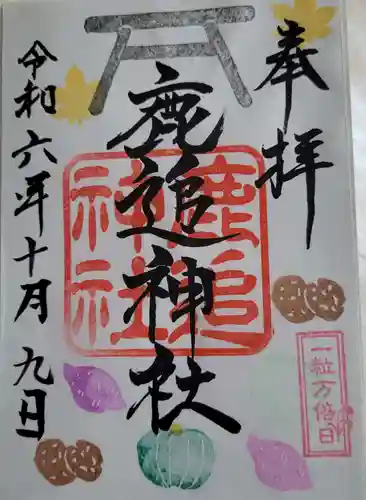 奉拝
鹿追神社
鹿追神社
一粒万倍日
令和六年十月九日